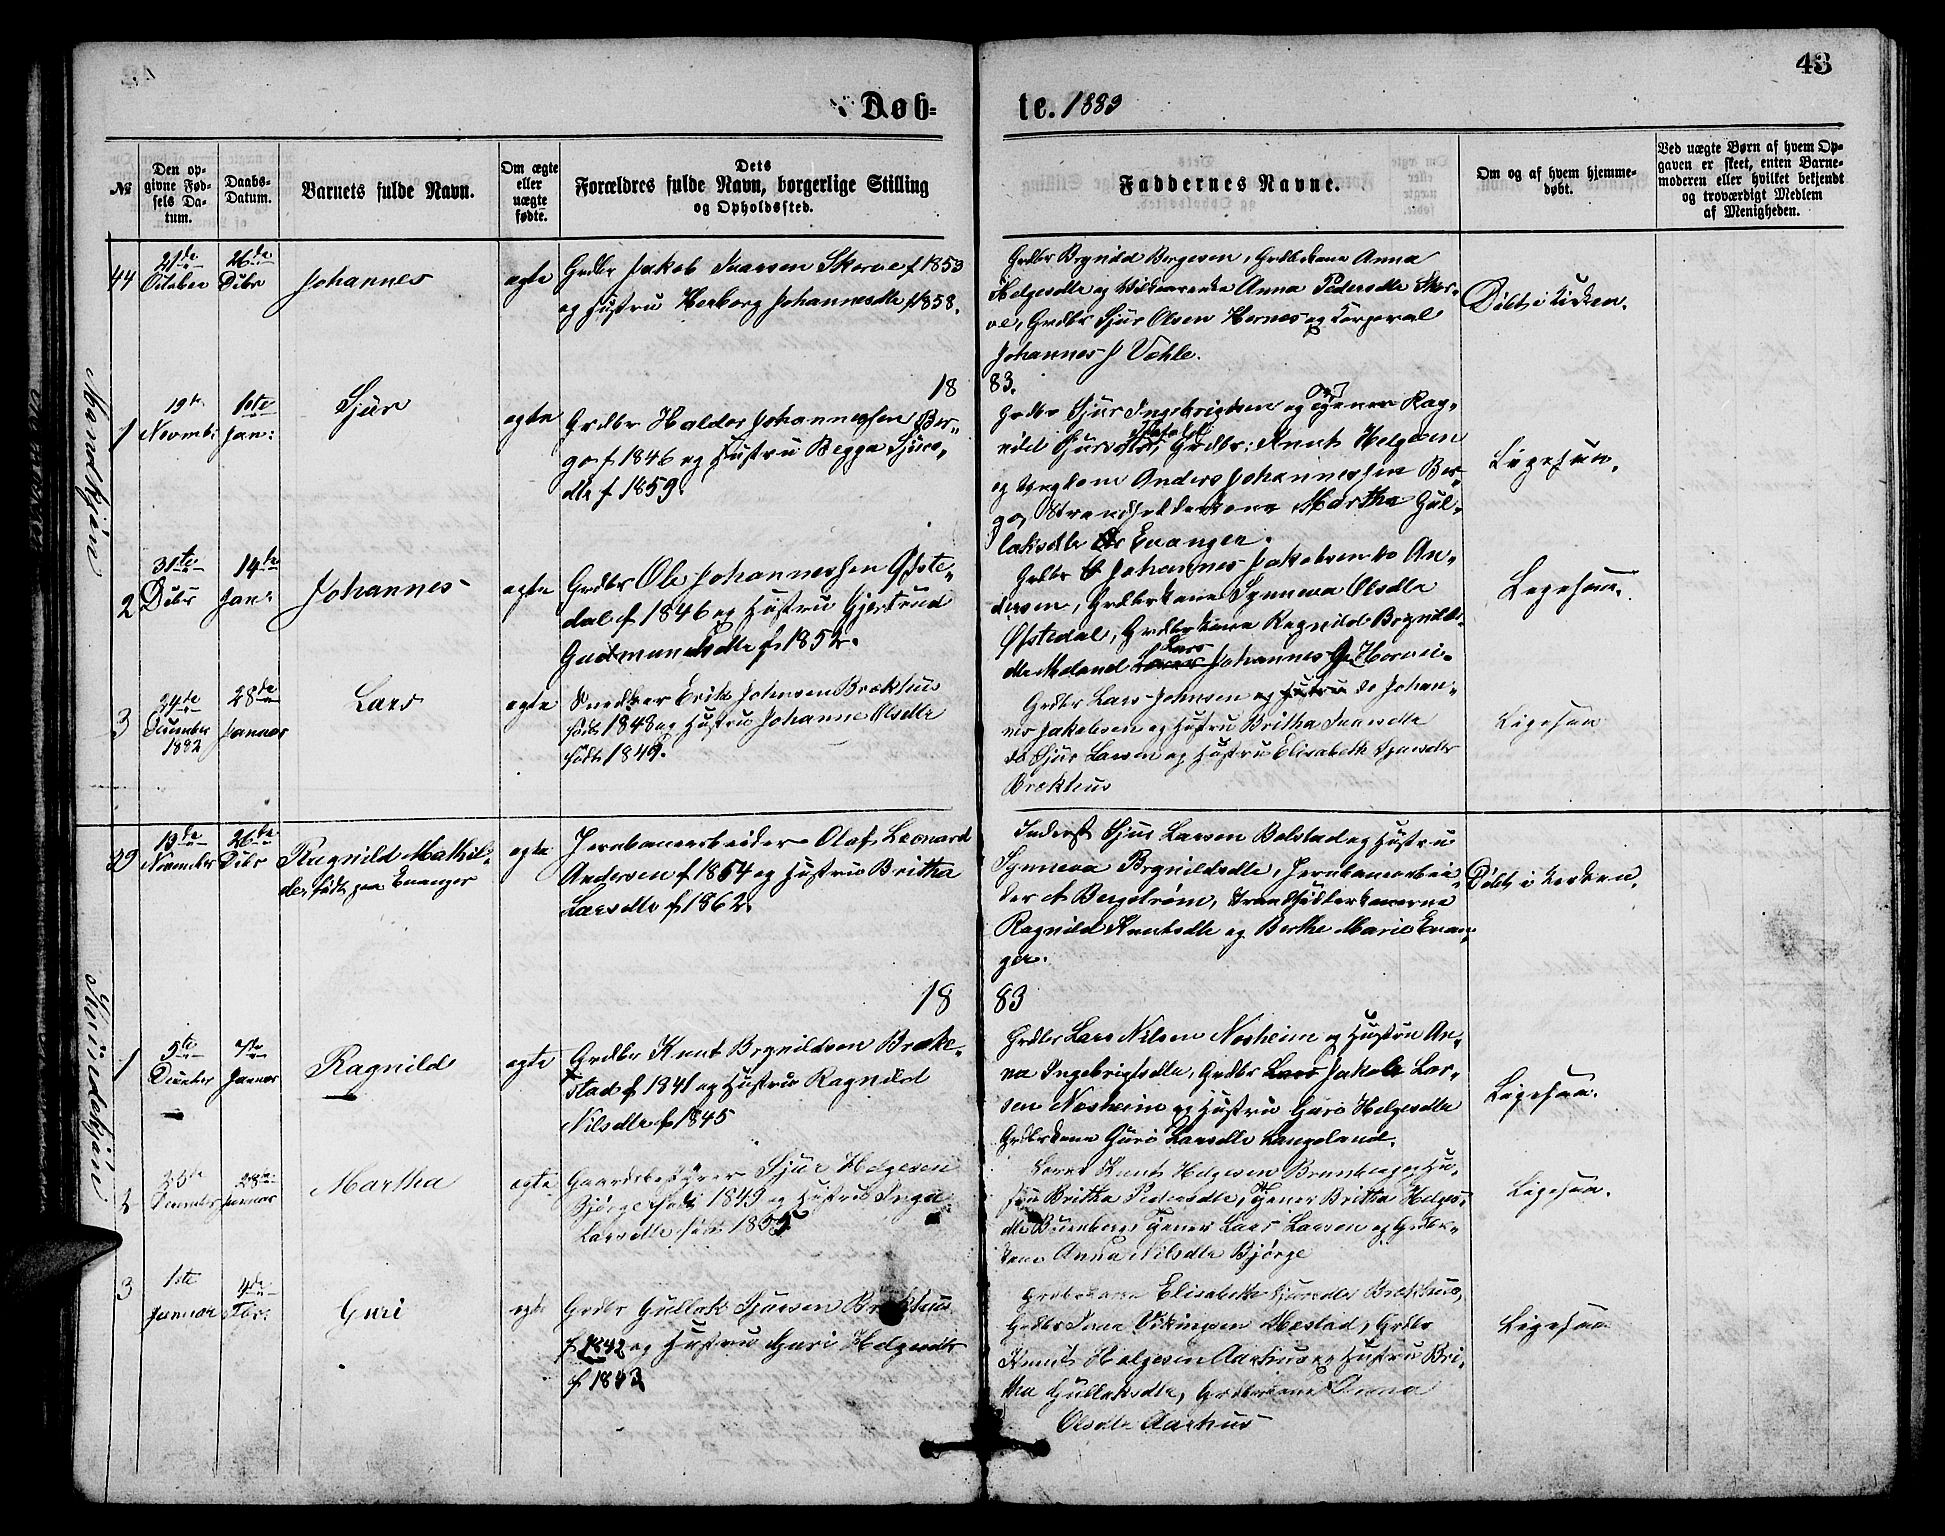 43
Døb-
te. 1883
№
Den op-
givne Fød-
sels Da-
tum.
Daabs-
Datum.
Barnets fulde Navn.
Om ægte
eller
uægte
fødte.
Dets
Forældres fulde Navn, borgerlige Stilling
og Opholdssted.
Faddernes Navne.
Om og af hvem hjemme-
døbt.
Ved uægte Børn af hvem Op-
gaven er skeet, enten Barne-
moderen eller hvilket bekjendt
og troværdigt Medlem
af Menigheden.
Mandkjøn
44
21de
October
26de
Dcbr
Johannes
ægte
Grdbr Jakob Ivarsen Skorve f 1853
og Hustru Herborg Johannesdtr f 1858.
Grdbr Brynild Bergesen, Grdbrkone Anna
Helgesdtr og Anna Pedersdtr Skor-
ve, Grdbr Sjur Olsen Hernes og Korporal
Johannes J Væhle.
Døbt i Kirken.
18
83.
1
19de
Novmbr
1ste
Jan:
Sjur
ægte
Grdbr Haldor Johannessen Ber-
ge f 1846 og Hustru Begga Sjurs-
dtr f 1859.
Grdbr Sjur Ingebrigtsen og Pigen Rag-
nild Sjursdtr, Grdbr: Knut Helgesen
og Ungkarl Anders Johannessen Ber-
ge, Strandsidderkone Martha Gul-
laksdtr Evanger.
Ligesaa.
2
31te
Dcbr
14de
Jan:
Johannes
ægte
Grdbr Ole Johannessen Øfste-
dal f 1846 og Hustru Gjertrud
Gudmundsdtr f 1852.
Grdbr Johannes Jakobsen do An-
dersen, Grdbrkone Synneva Olsdtr
Øfstedal, Grdbrkone Ragnild Brynilds-
dtr Meland Lars Johannes
Ligesaa.
3
24de
December
1882
28de
Januar
Lars
ægte
Snedker Erik Johnsen Brækhus
født 1848 og Hustru Johanne Olsdtr
født 1849.
Grdbr Lars Johnsen og Hustru do Johan-
nes Jakobsen og Hustru Britha Ivarsdtr
do Sjur Larsen og Hustru Elisabeth Sjursdtr
Brækhus
Ligesaa
Kvindekjøn
29
13de
November
26de
Dcbr
Ragnild Mathil-
de, født paa Evanger
ægte
Jernbanearbeider Olaf Leonard
Andersen f 1854 og Hustru Britha
Larsdtr f 1862.
Inderst Sjur Larsen Bolstad og Hustru
Synneva Brynildsdtr, Jernbanearbei-
der A Bergstrøm, Strandsidderkonerne
Ragnild Knutsdtr og Berthe Marie Evan-
ger.
Døbt i Kirken.
18
83
1
5te
December
7de
Januar
Ragnild
ægte
Grdbr Knut Brynildsen Brake-
stad f 1841 og Hustru Ragnild
Nilsdtr f 1845
Grdbr Lars Nilsen Nesheim og Hustru An-
na Ingebrigtsdtr, Grdbr Lars Jakob Lar-
sen Nesheim og Hustru Guro Helgesdtr
Grdbrkone Guro Larsdtr Langeland.
Ligesaa.
2
December
28de
Januar
Martha
ægte
Gaardsbestyrer Sjur Helgesen
Bjørge født 1849 og Hustru Inga
Larsdtr født 1855
Knut Helgesen Bumberg og Hu-
stru Britha Pedersdtr, Pigen Britha Helges-
dtr Bumberg Lars Larsen og Grdbr-
kone Anna Nilsdtr Bjørge
Ligesaa.
3
1ste
Januar
4de
Fbr:
Guri
ægte
Grdbr Gullak Sjursen Brækhus
f 1842 og Hustru Guri Helgesdtr
f 1843
Grdbrkone Elisabeth Sjursdtr Brækhus,
Grdbr Ivar Vikingsen Mestad, Grdbr
Knut Helgesen Aarhus og Hustru Bri-
tha Gullaksdtr, Grdbrkone Anna
Olsdtr Aarhus
Ligesaa